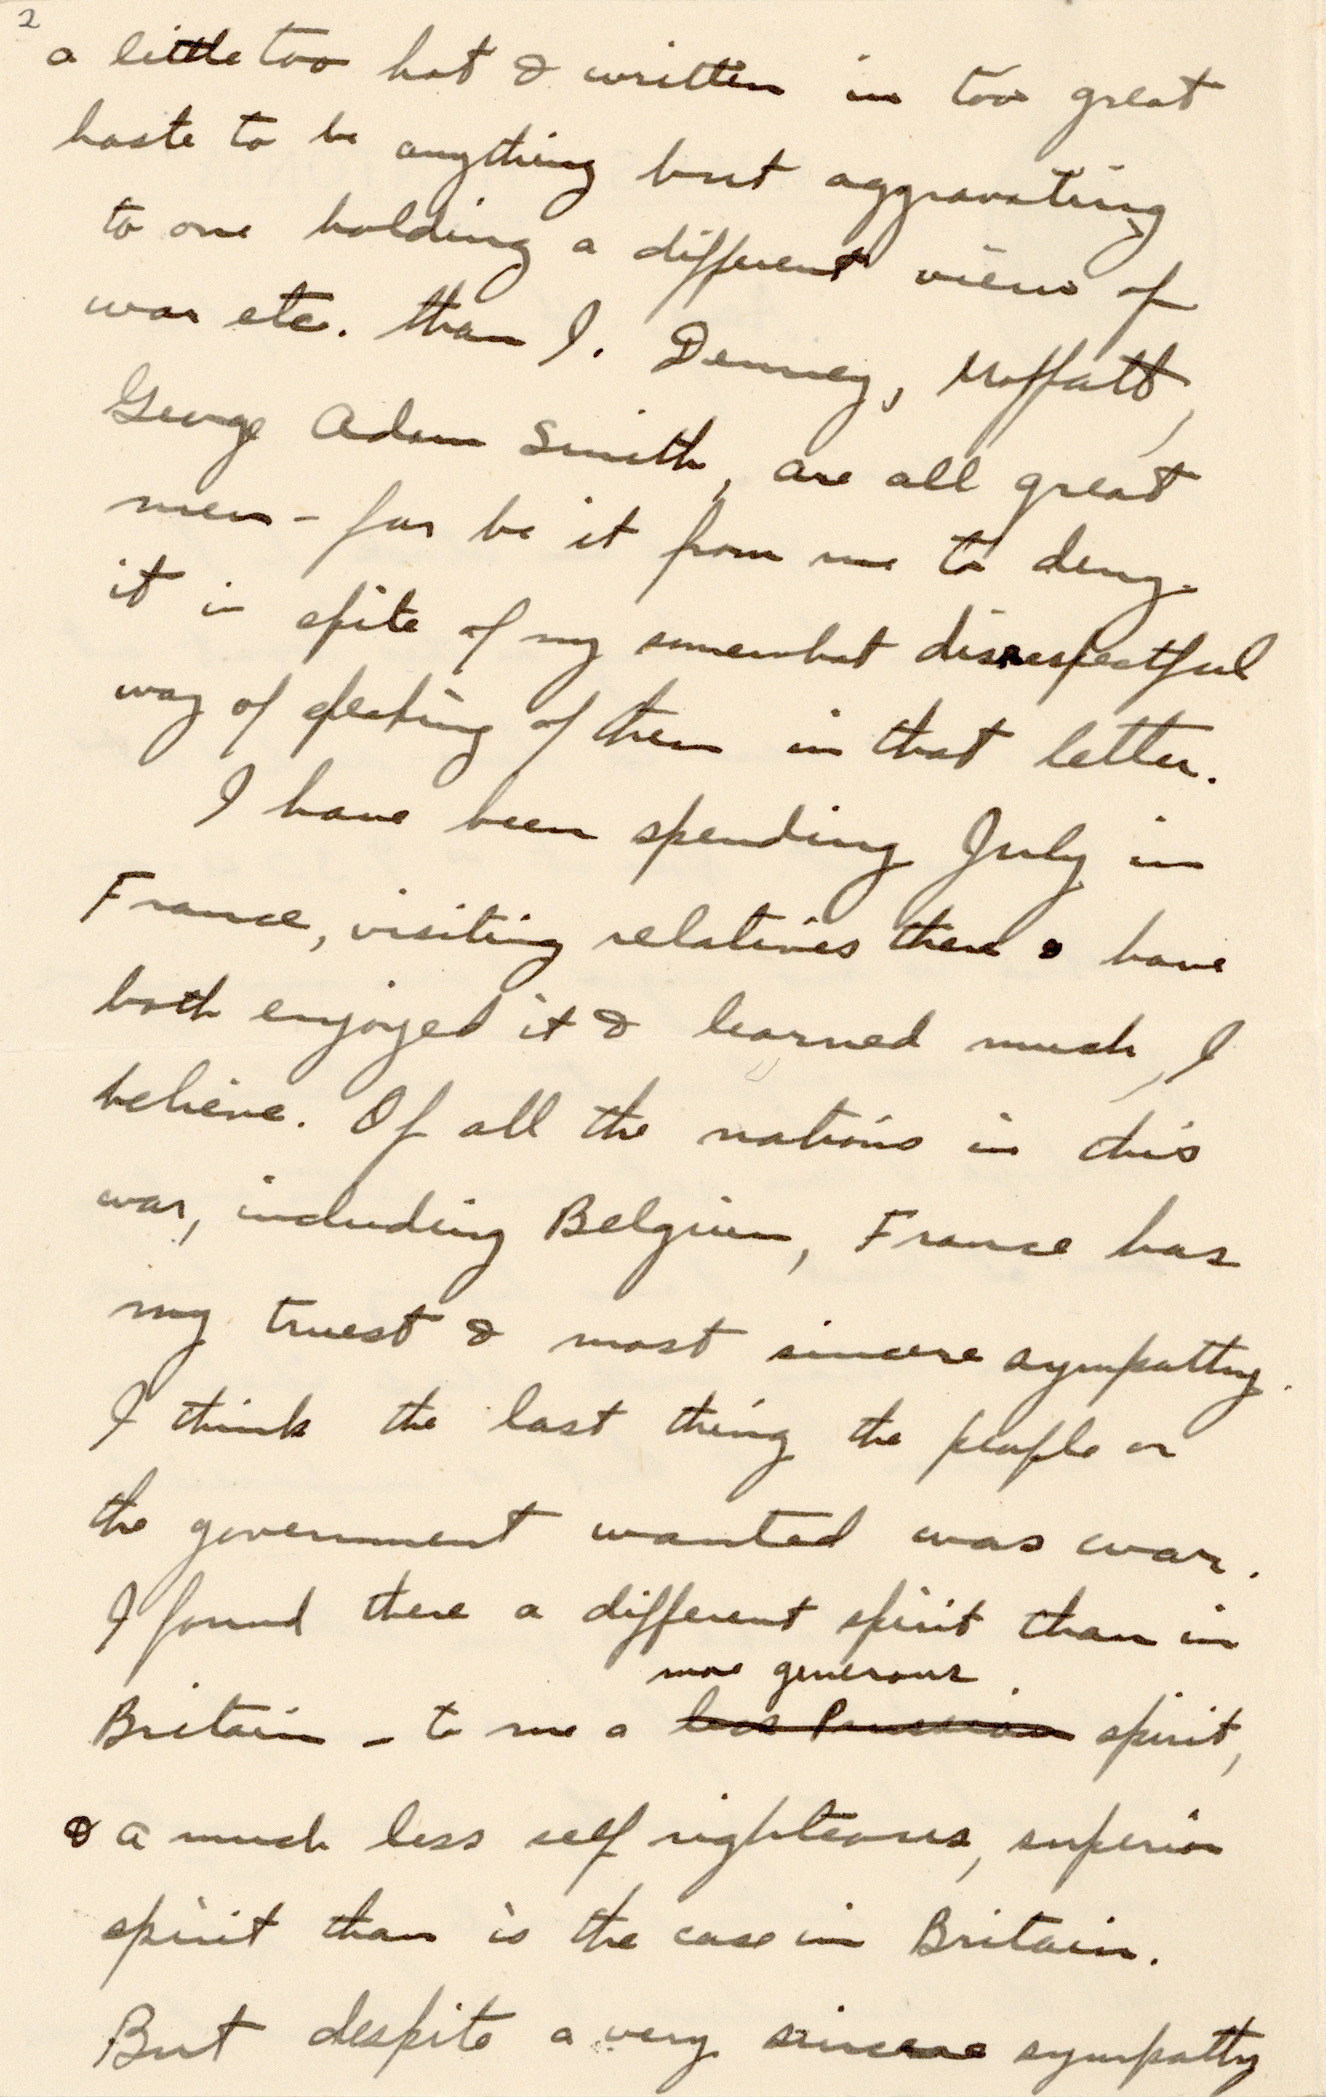 2
a little too hot & written in too great
haste to be anything but aggravating
to one holding a different view of
war etc. than I. Denney, Moffatt,
George Adam Smith, are all great
men - far be it from me to deny
it in spite of my somewhat disrespectful
way of speaking of them in that letter.
I have been spending July in
France, visiting relatives there & have
both enjoyed it & learned much, I
believe. Of all the nations in this
war, including Belgium, France has
my truest & most sincere sympathy.
I think the last thing the people or
the government wanted was war.
I found there a different spirit than in
more generous
Britain - to me a less Prussian spirit,
& a much less self righteous, superior
spirit than is the case in Britain.
But despite a very sincere sympathy